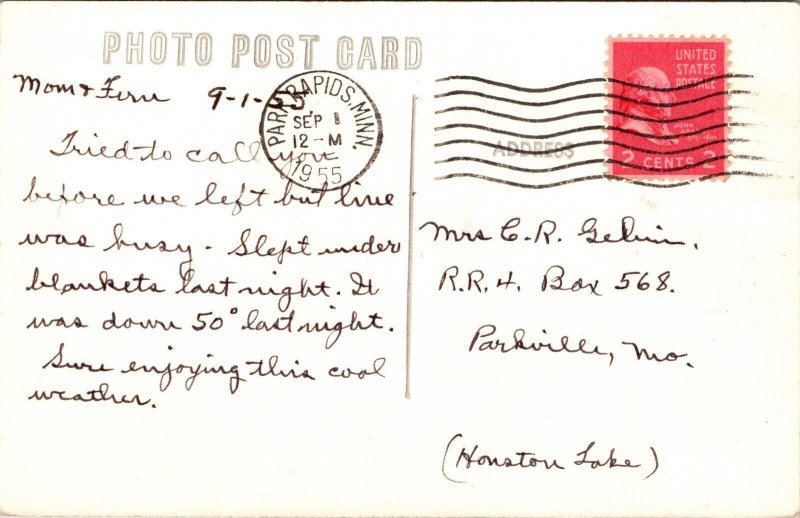 PHOTO POST CARD
Mom & Fern 9-1-55
PARK RAPIDS, MINN.
SEP 1
12-M
1955
UNITED
STATES
POSTAGE
JOHN
2 CENTS 2
ADDRESS
Tried to call you
before we left but line
was busy - Slept under
blankets last night. It
was down 50° last night.
Sure enjoying this cool
weather.
Mrs C.R.
R.R.4. Box 568.
Parkville, Mo.
(Houston Lake)